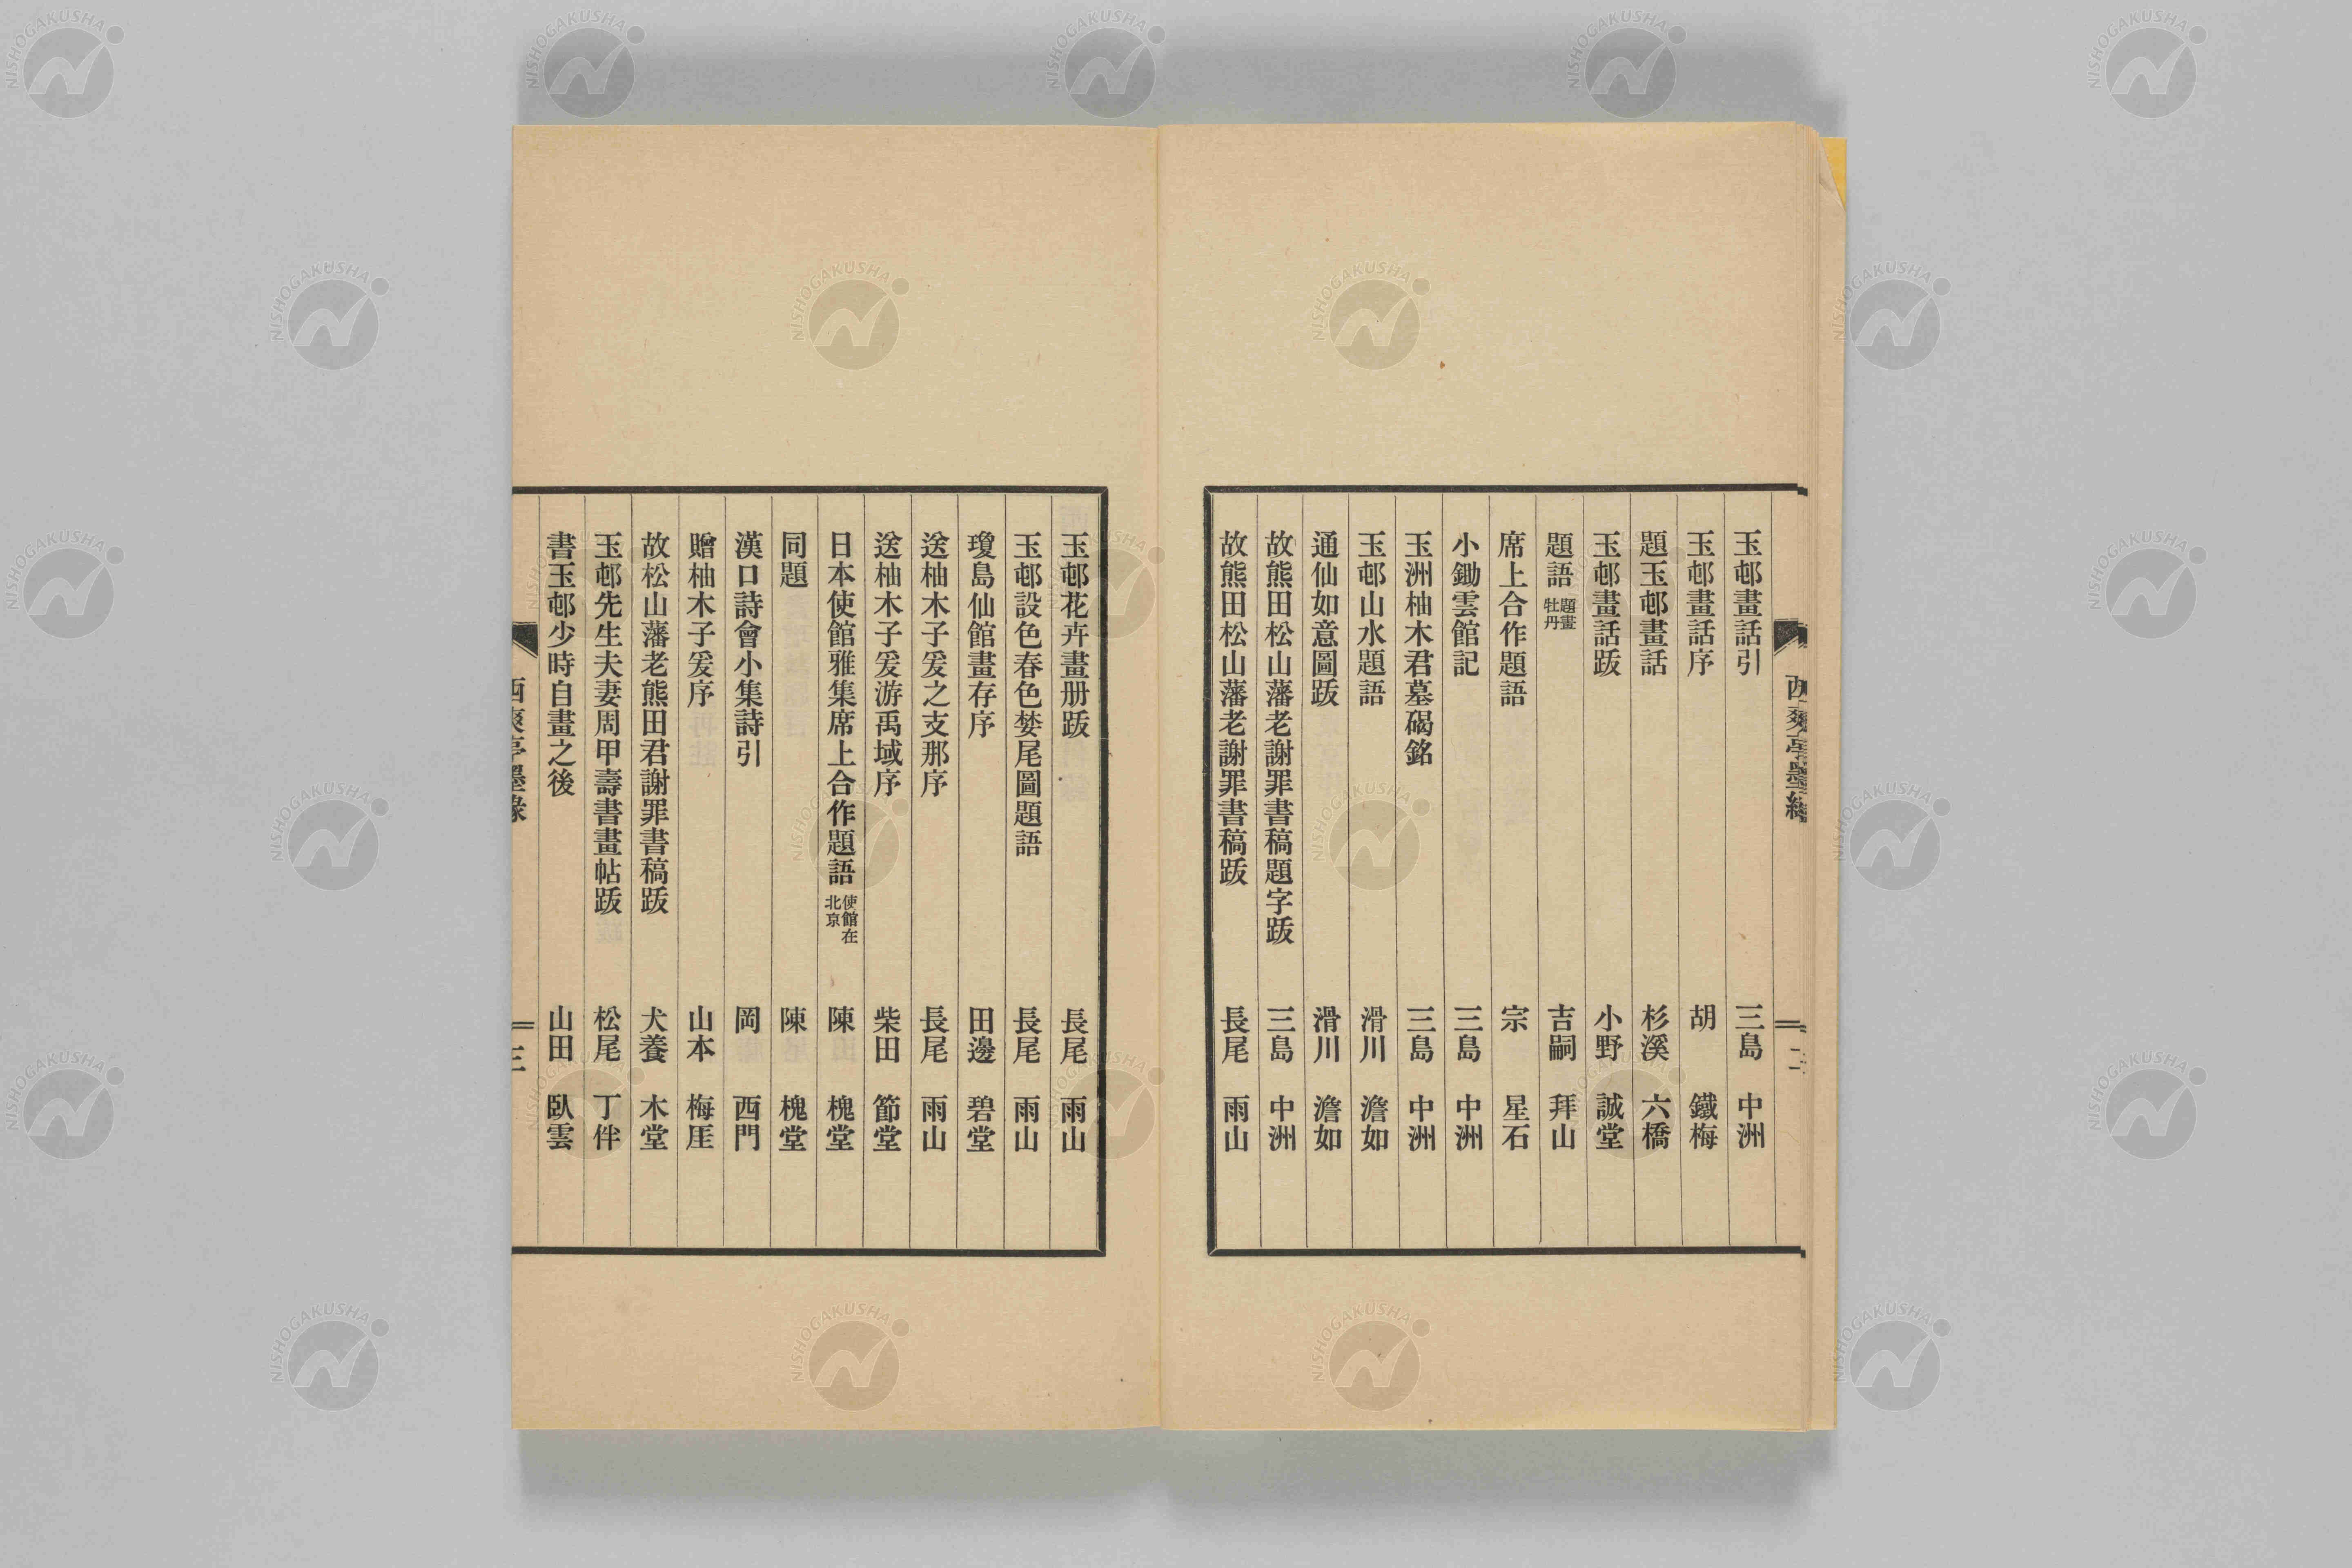 西爽亭墨緣
二
玉邨畫話引 三島 中洲
玉邨畫話序 胡 鐵梅
題玉邨畫話 杉溪 六橋
玉邨畫話跋 小野 誠堂
題語 題畫牡丹 吉嗣 拜山
席上合作題語 宗 星石
小鋤雲館記 三島 中洲
玉洲柚木君墓碣銘 三島 中洲
玉邨山水題語 滑川 澹如
通仙如意圖跋 滑川 澹如
故熊田松山藩老謝罪書稿題字跋 三島 中洲
故熊田松山藩老謝罪書稿跋 長尾 雨山
玉邨花卉畫册跋 長尾 雨山
玉邨設色春色婪尾圖題語 長尾 雨山
瓊島仙館畫存序 田邊 碧堂
送柚木子爰之支那序 長尾 雨山
送柚木子爰游禹域序 柴田 節堂
日本使館雅集席上合作題語 使館在北京 陳 槐堂
同題 陳 槐堂
漢口詩會小集詩引 岡 西門
贈柚木子爰序 山本 梅厓
故松山藩老熊田君謝罪書稿跋 犬養 木堂
玉邨先生夫妻周甲壽書畫帖跋 松尾 丁伴
書玉邨少時自畫之後 山田 臥雲
西爽亭墨緣
三
NISHOGAKUSHA